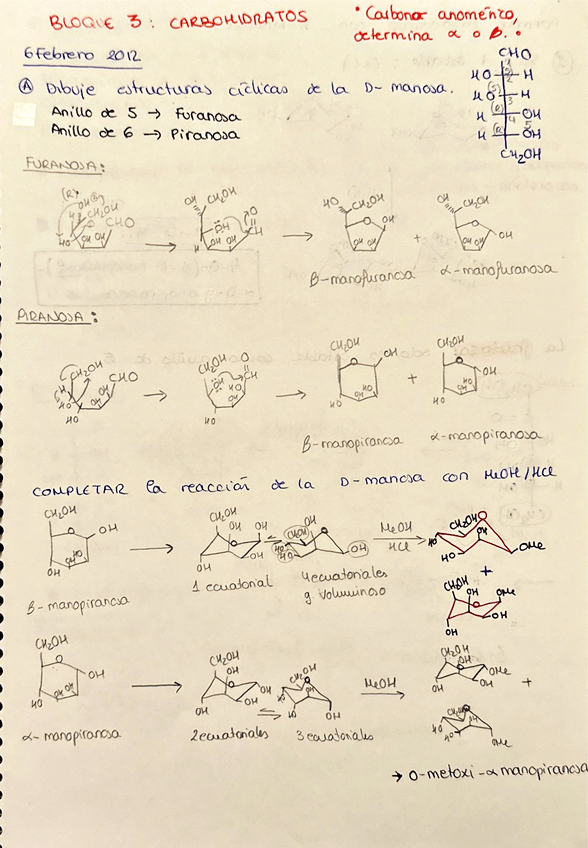 BLOQUE 3: CARBOHIDRATOS
• Carbono anomérico,
determina α o β. •
6 Febrero 2012
CHO
HO H
HO H
H OH
H OH
CH₂OH
Ⓐ Dibuje estructuras cíclicas de la D-manosa.
Anillo de 5 → Furanosa
Anillo de 6 → Piranosa
FURANOSA:
(R) OH
CH₂OH
CHO
HO OH OH
OH CH₂OH
OH OH OH H O
→
HO CH₂OH
O OH
OH OH
+
OH CH₂OH
O
OH OH OH
β-manofuranosa
α-manofuranosa
PIRANOSA:
CH₂OH
CHO
HO
HO
→
CH₂OH
O
H
HO
→
CH₂OH
O OH
OH HO
HO
+
CH₂OH
O OH
OH HO
HO
β-manopiranosa
α-manopiranosa
COMPLETAR la reacción de la D-manosa con MeOH/HCl
CH₂OH
O OH
OH HO
OH
β-manopiranosa
→
CH₂OH
OH OH
O
OH OH
1 ecuatorial
⇌
CH₂OH OH
O
HO
HO OH
4 ecuatoriales
g. voluminoso
MeOH
HCl
→
CH₂OH O
HO OH
HO OMe
+
CH₂OH OH OMe
O
OH OH
CH₂OH
O OH
OH OH
HO
α-manopiranosa
→
CH₂OH
OH
O OH
OH OH
2 ecuatoriales
⇌
CH₂OH
O
HO OH
HO OH
3 ecuatoriales
MeOH
→
CH₂OH
OH O OMe
OH OH
+
CH₂OH
HO O
HO
OMe
→ O-metoxi-α manopiranosa